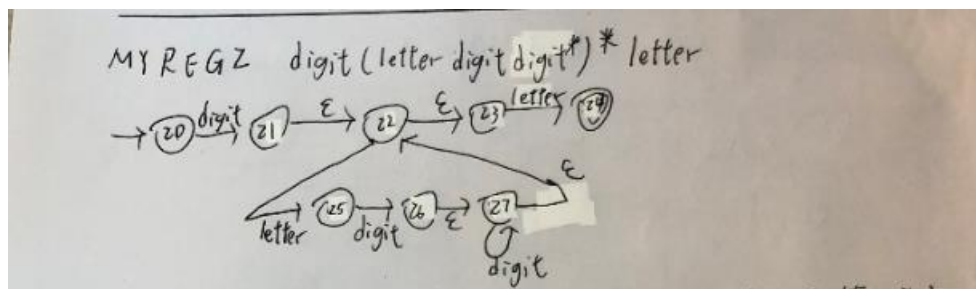 MYREGZ digit(letter digit digit*)* letter
20 digit 21 ε 22 ε 23 letter 24
ε
25 26 ε 27
letter digit
digit